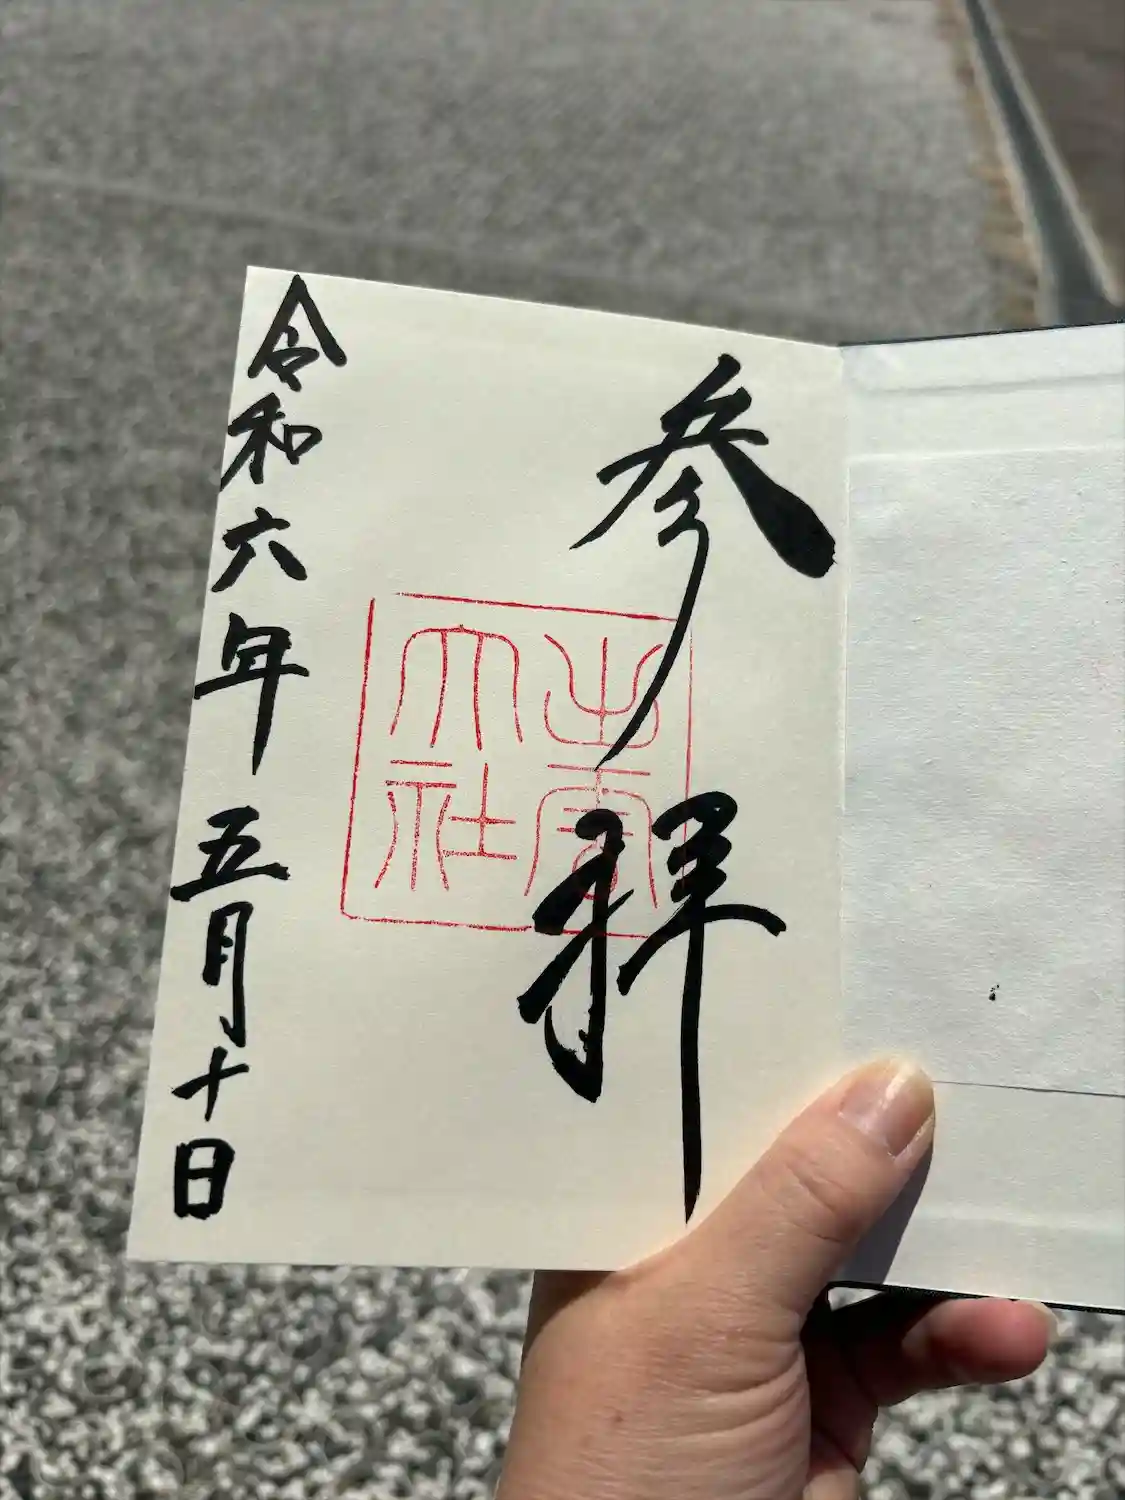 参拝
出雲
大社
令和六年 五月十日